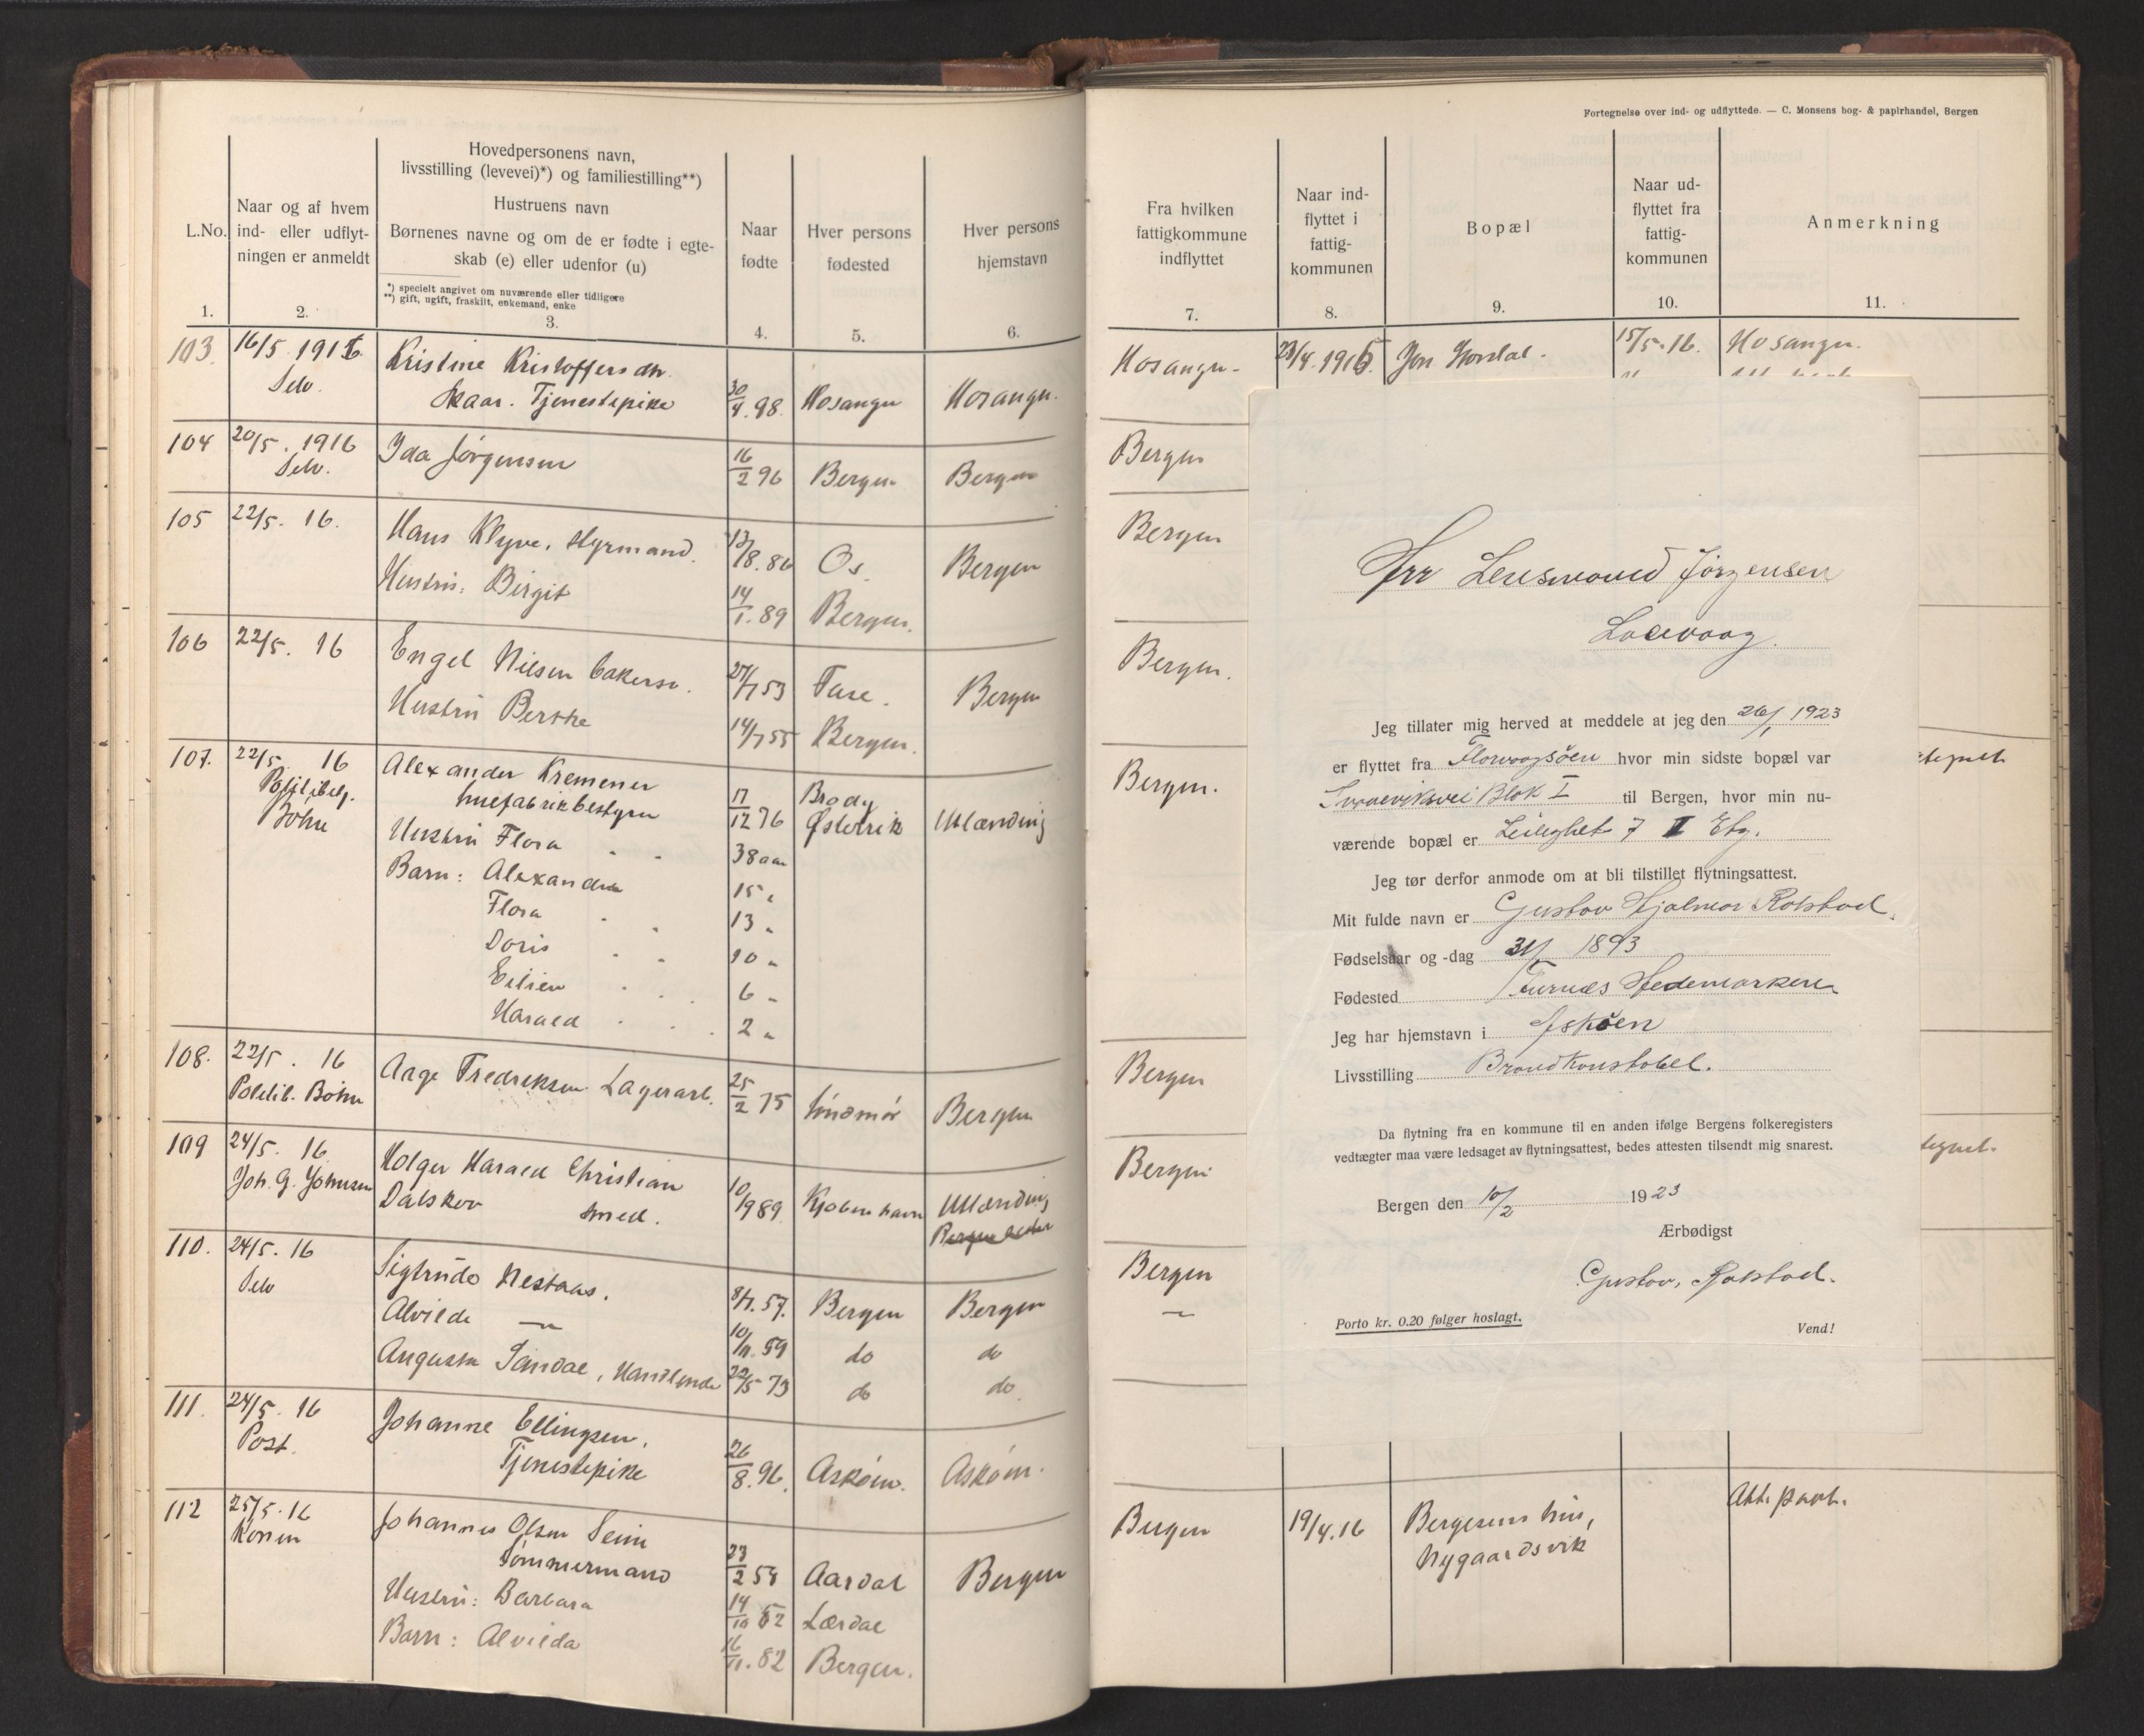 Fortegnelse over ind- og udflyttede. — C. Monsens bog- & papirhandel, Bergen
L.No.
1.
Naar og af hvem
ind- eller udflyt-
ningen er anmeldt
2.
Hovedpersonens navn,
livsstilling (levevei)*) og familiestilling**)
Hustruens navn
Børnenes navne og om de er fødte i egte-
skab (e) eller udenfor (u)
*) specielt angivet om nuværende eller tidligere
**) gift, ugift, fraskilt, enkemand, enke
3.
Naar
fødte
4.
Hver persons
fødested
5.
Hver persons
hjemstavn
6.
Fra hvilken
fattigkommune
indflyttet
7.
Naar ind-
flyttet i
fattig-
kommunen
8.
Bopæl
9.
Naar ud-
flyttet fra
fattig-
kommunen
10.
Anmerkning
11.
103 16/5 1916 Kristine Kristoffersdtr. Hosangr. 1916 15/5.16. Hosangr.
Selv. Skaar. Tjenestepike 30/4.98. Hosangr Hosangr.
104 20/5. 1916 Ida Jørgensen Bergen
Selv. 16/2 96 Bergen Bergen
105 22/5. 16. Hans Klyve, styrmand. 13/8.86 Os. Bergen Bergen
Hustru: Birgit 14/1.89 Bergen.
106 22/5. 16 Engel Nilsen 53 Fuse. Bergen Bergen.
Hustru Berthe 14/7 55 Bergen.
107. 22/5 16 Alexander Kremener Brody Bergen.
huefabrikbestyrer 17/12 76 Østerrik Utlænding
Bøhn
Hustru Flora 38 aar
Barn: Alexander 15 "
Flora 13 "
Doris 10 "
Eilien 6 "
Harald 2 "
108. 22/5. 16 Aage Fredriksen Lagerarb. 25/2 75 Søndmør Bergen Bergen
Politib. Bøhn
109 24/5. 16. Holger Harald Christian Bergen
Joh. G. Johnsen Dalskov Smed. 10/9 89. Kjøbenhavn Utlænding
110. 24/5. 16 Sigtrude Nestaas. 57. Bergen Bergen Bergen
Selv Alvilde — " — 10/11.59 do do — " —
Augusta Sandal, Handlende 22/5 73 do do.
111. 24/5. 16 Johanne Ellingsen,
Post. Tjenestepike 26/8.96. Askøen. Askøen.
112 25/5.16 Johannes Olsen Seim Bergen 19/4.16 Bergesens hus, Att. paat.
Konen Tømmermand 23/2 54 Aardal Bergen Nygaardsvik
Hustru: Barbara 14/10 52 Lærdal
Barn: Alvilda 16/11.82 Bergen.
Hrr Lensmand Jørgensen
Laxevaag.
Jeg tillater mig herved at meddele at jeg den 26/1 1923
er flyttet fra Florvaagsøen hvor min sidste bopæl var
Blok I til Bergen, hvor min nu-
værende bopæl er Leilighet 7 II Etg.
Jeg tør derfor anmode om at bli tilstillet flytningsattest.
Mit fulde navn er Gustav Hjalmar Rolstad.
Fødselsaar og -dag 1893
Fødested Furnæs Hedemarken
Jeg har hjemstavn i Askøen
Livsstilling Brandkonstabel.
Da flytning fra en kommune til en anden ifølge Bergens folkeregisters
vedtægter maa være ledsaget av flytningsattest, bedes attesten tilsendt mig snarest.
Bergen den 10/2 1923
Ærbødigst
Gustav, Rolstad.
Porto kr. 0.20 følger hoslagt.
Vend!